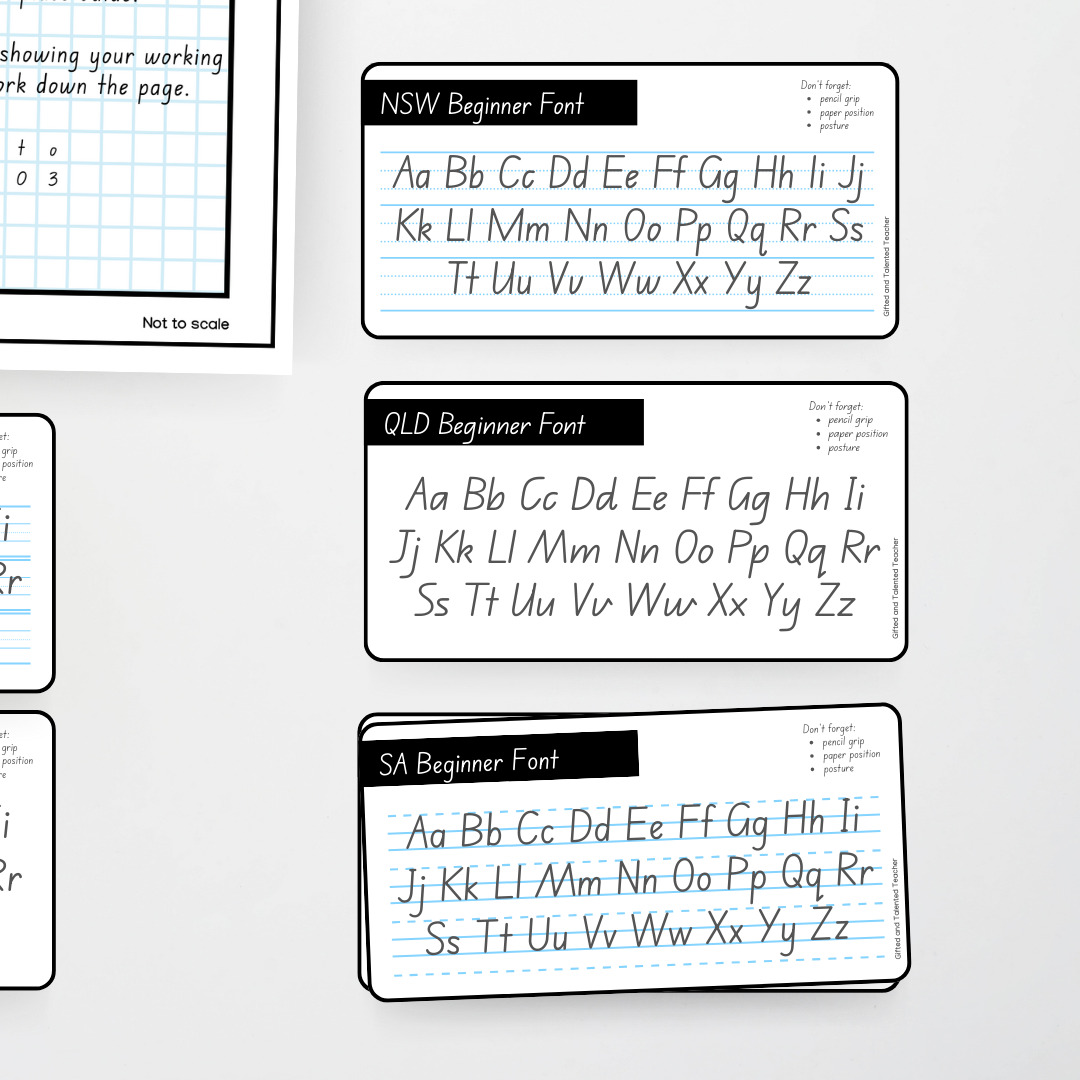 showing your working
ork down the page.
t o
0 3
Not to scale
grip
position
i
Rr
grip
position
i
Rr
NSW Beginner Font
Don't forget:
• pencil grip
• paper position
• posture
Aa Bb Cc Dd Ee Ff Gg Hh Ii Jj
Kk Ll Mm Nn Oo Pp Qq Rr Ss
Tt Uu Vv Ww Xx Yy Zz
Gifted and Talented Teacher
QLD Beginner Font
Don't forget:
• pencil grip
• paper position
• posture
Aa Bb Cc Dd Ee Ff Gg Hh Ii
Jj Kk Ll Mm Nn Oo Pp Qq Rr
Ss Tt Uu Vv Ww Xx Yy Zz
Gifted and Talented Teacher
SA Beginner Font
Don't forget:
• pencil grip
• paper position
• posture
Aa Bb Cc Dd Ee Ff Gg Hh Ii
Jj Kk Ll Mm Nn Oo Pp Qq Rr
Ss Tt Uu Vv Ww Xx Yy Zz
Gifted and Talented Teacher